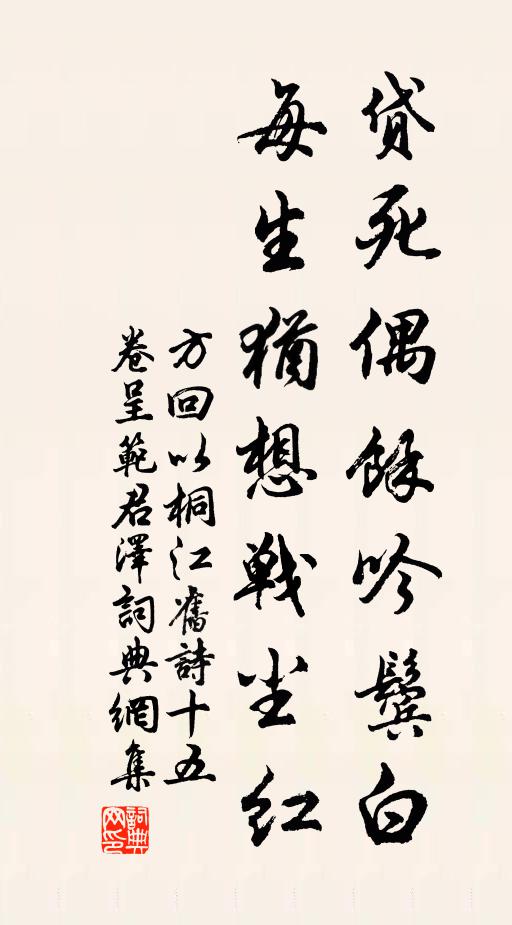 貸死偶餘吟鬢白
每生猶想戰尘紅
方回以桐江舊詩十五
卷呈範君澤詞典網集
詞典
网印